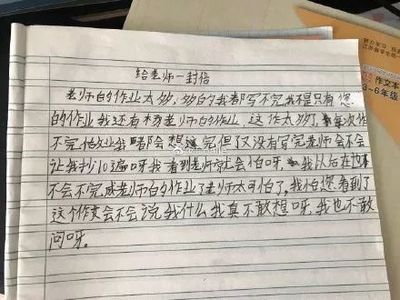 给老师一封信
老师的作业太多,多的我都写不完我不是只有您
的作业我还有杨老师的作业,这作太多了,每次作
不完作业我都会想逃完但了又没有写完老师会不会
让我抄103遍呀我看到老师就会怕呀,我从后在也
不会不完成老师的作业了老师太可怕了,我怕您看到了
这个作文会不会说我什么我真不敢想呀我也不敢
问呀。
作文本
3-6年级